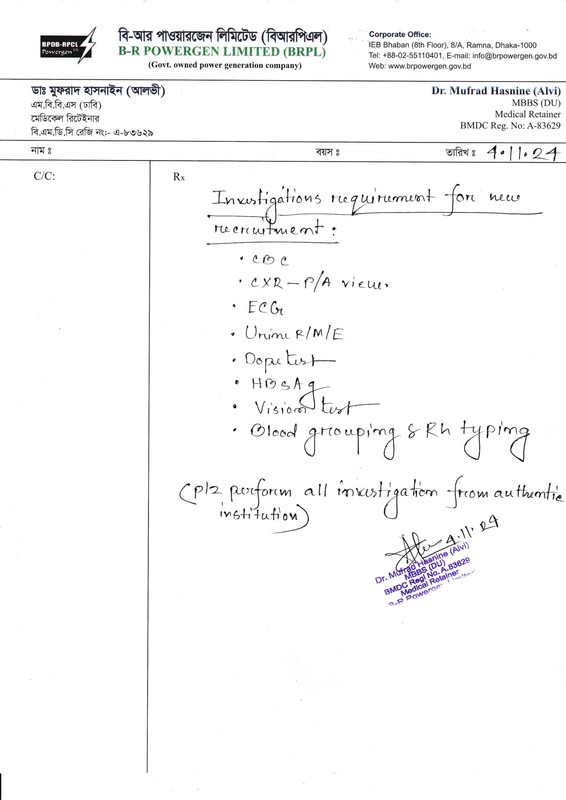 BPDB-RPCL
Powergen
বি-আর পাওয়ারজেন লিমিটেড (বিআরপিএল)
B-R POWERGEN LIMITED (BRPL)
(Govt. owned power generation company)
Corporate Office:
IEB Bhaban (8th Floor), 8/A, Ramna, Dhaka-1000
Tel: +88-02-55110401, E-mail: info@brpowergen.gov.bd
Web: www.brpowergen.gov.bd
ডাঃ মুফরাদ হাসনাইন (আলভী)
এম.বি.বি.এস (ঢাবি)
মেডিকেল রিটেইনার
বি.এম.ডি.সি রেজি নং:- এ-৮৩৬২৯
Dr. Mufrad Hasnine (Alvi)
MBBS (DU)
Medical Retainer
BMDC Reg. No: A-83629
নাম ঃ বয়স ঃ তারিখ ঃ 4.11.24
C/C: Rx
Investigations requirement for new
recruitment:
• CBC
• CXR – P/A view.
• ECG
• Urine R/M/E
• Dope test
• HBsAg
• Vision test
• Blood grouping & Rh typing
(plz perform all investigation from authentic
institution)
4.11.24
Dr. Mufrad Hasnine (Alvi)
MBBS (DU)
BMDC Regi No. A-83629
Medical Retainer
B-R Powergen Limited